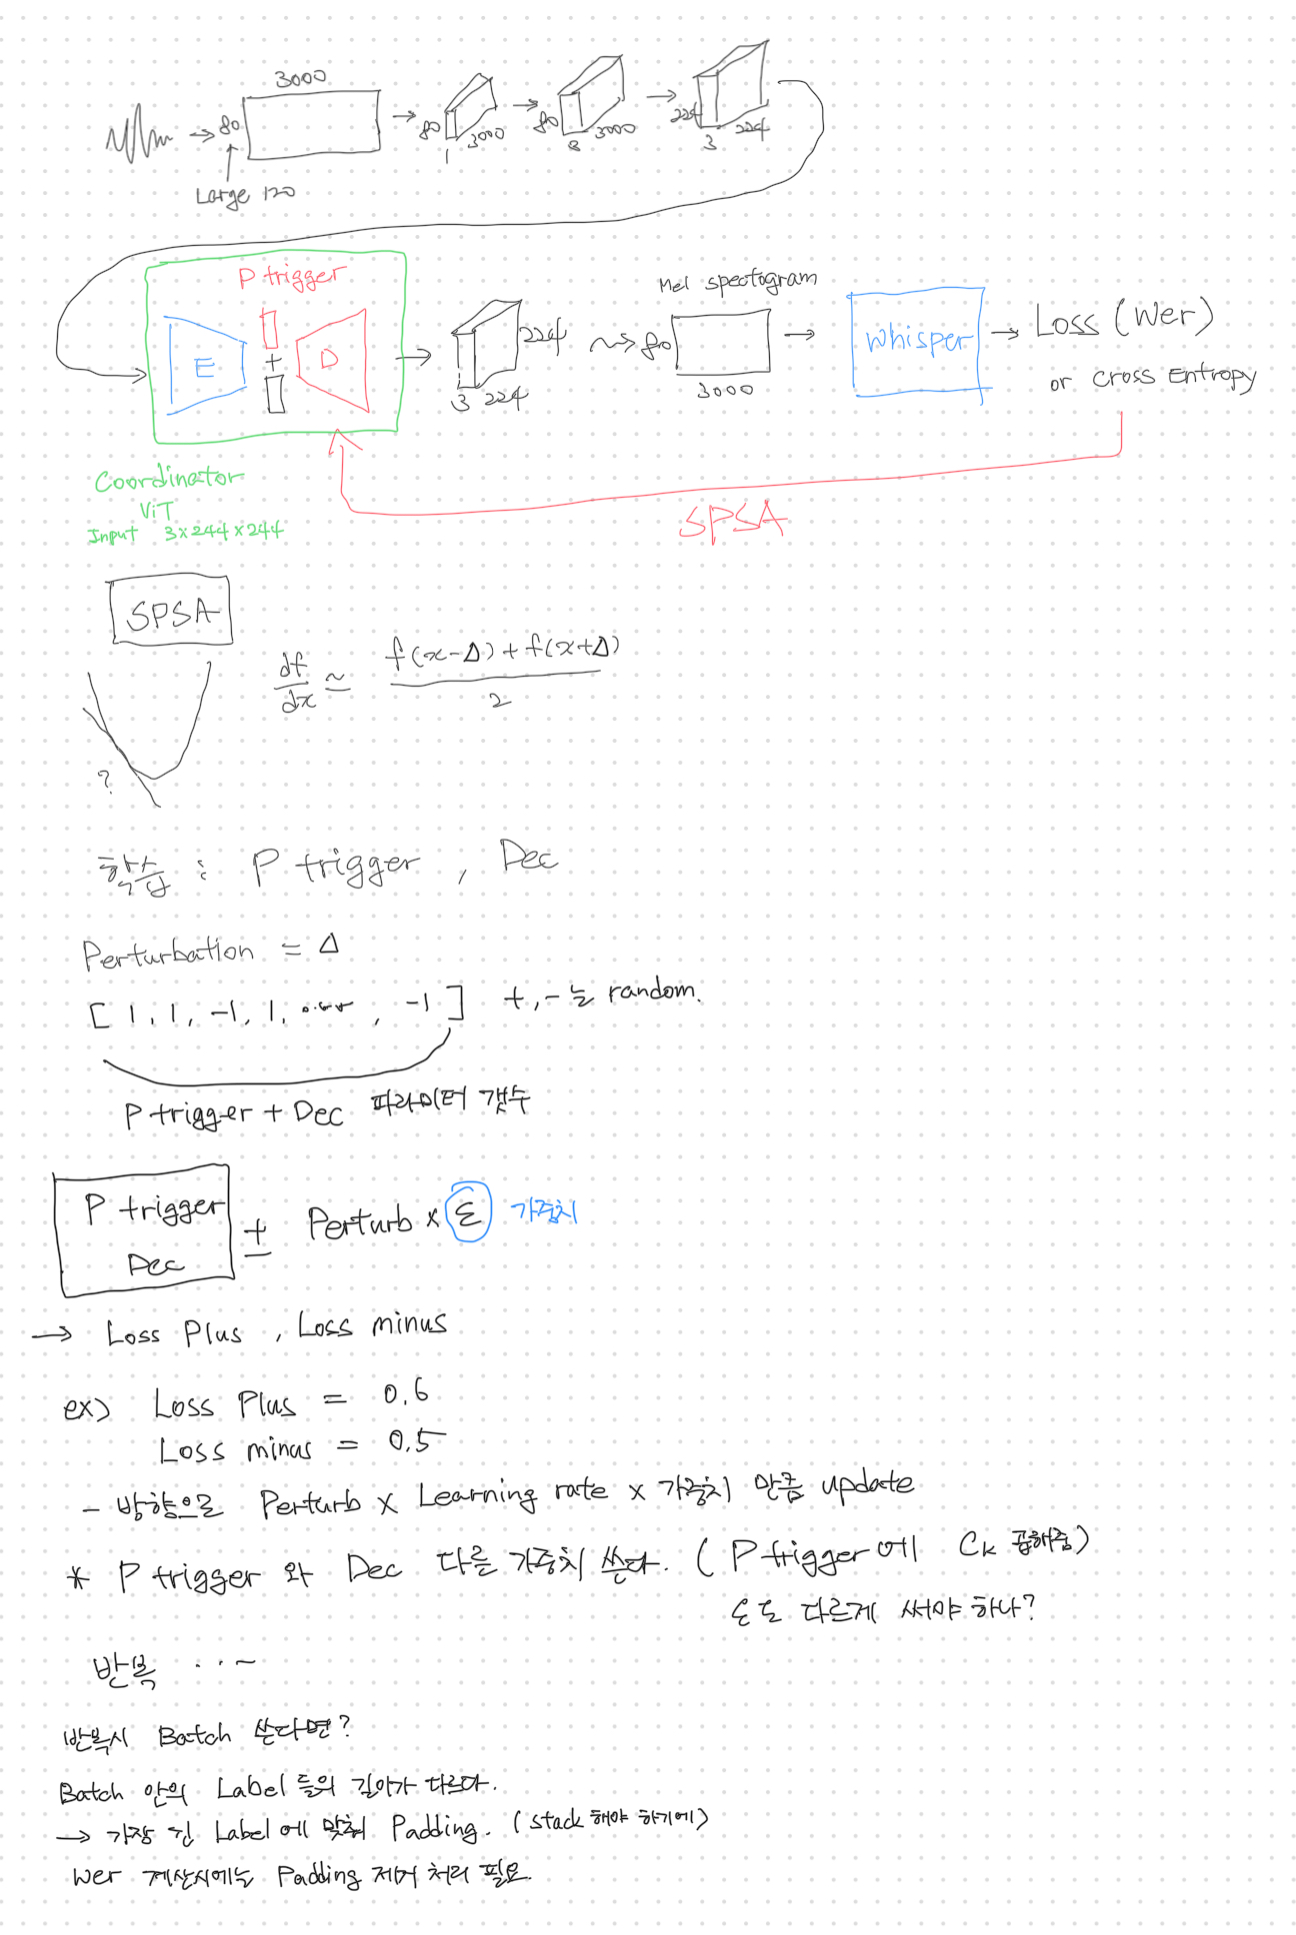 3000
80
Large 120
80 3000
1
80 3000
8
224 224
3
P trigger
E + D
224
3 224
Mel spectogram
80
3000
Whisper
Loss (Wer)
or Cross Entropy
SPSA
Coordinator
ViT
Input 3×244×244
SPSA
df/dx ≃ f(x-Δ)+f(x+Δ) / 2
?
학습 : P trigger , Dec
Perturbation = Δ
[ 1, 1, -1, 1, ..... , -1 ] +, - 는 random.
P trigger + Dec 파라미터 갯수
P trigger
Dec
± Perturb × ε 가중치
→ Loss Plus , Loss minus
ex) Loss Plus = 0.6
Loss minus = 0.5
- 방향으로 Perturb × Learning rate × 가중치 만큼 update
* P trigger 와 Dec 다른 가중치 쓴다. ( P trigger에 Ck 곱해줌)
ε도 다르게 써야 하나?
반복 ...~
반복시 Batch 쓴다면?
Batch 안의 Label 들의 길이가 다르다.
→ 가장 긴 Label에 맞춰 Padding. (stack 해야 하기에)
Wer 계산시에는 Padding 제거 처리 필요.